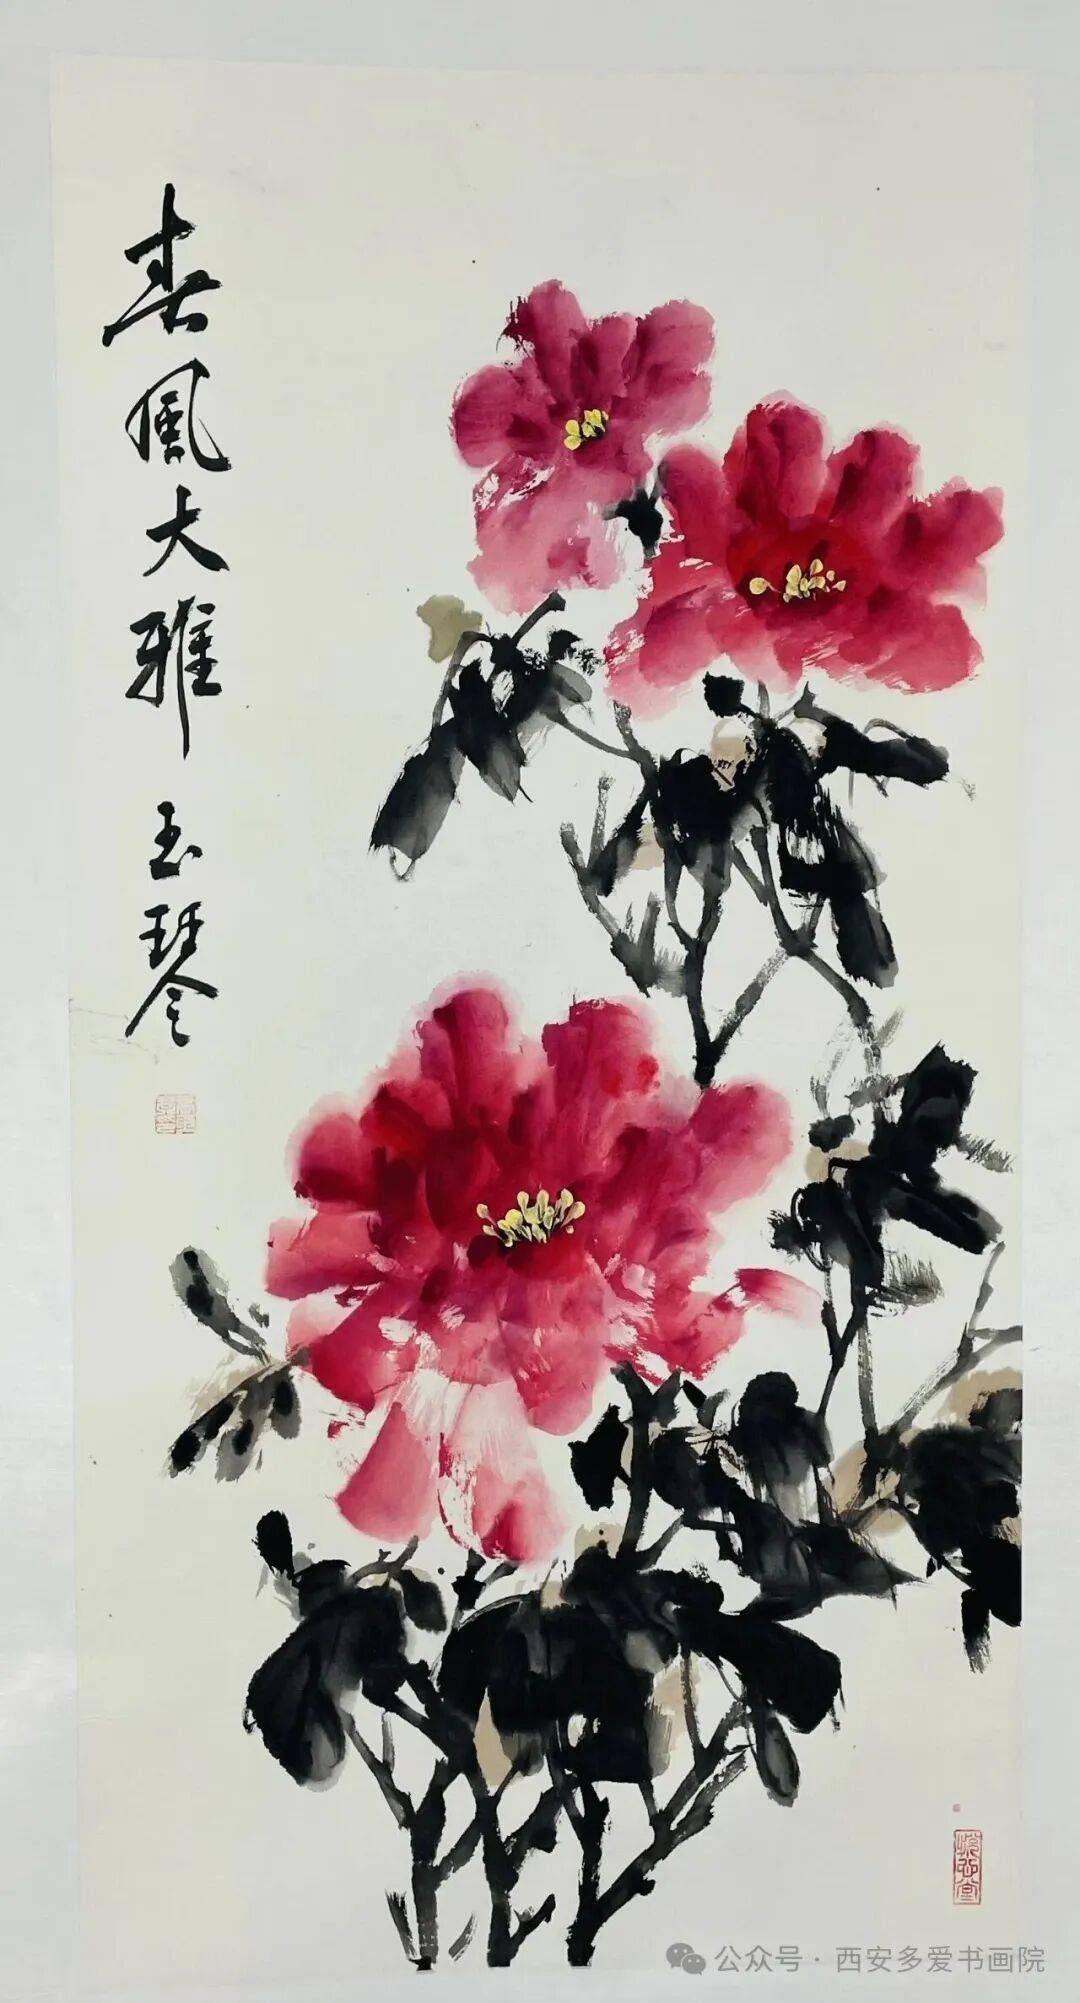 春風大雅
玉琴
公众号·西安多爱书画院